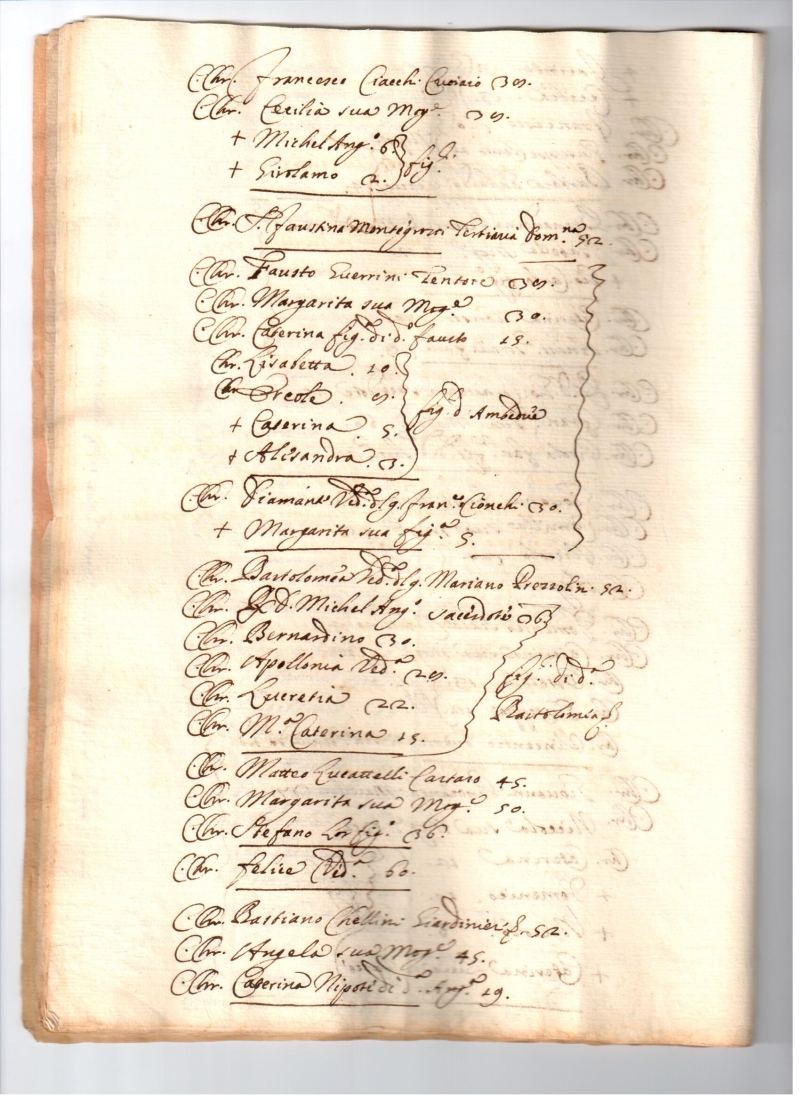 C. Chr. Francesco Ciacchi Cuoiaio 39.
C. Chr. Cecilia sua Mog.e 39.
+ Michel Ang.o 6. fig.li
+ Girolamo 2.
C. Chr. S.r Faustina Tertiaria Dom.na 52.
C. Chr. Fausto Guerrini Tentore 39.
C. Chr. Margarita sua Mog.e 30.
C. Chr. Caterina fig.a di d.o Fausto 15.
Chr. Lisabetta. 10.
Chr. Ercole. 9.
fig. d Ambedue
+ Caterina. 5.
+ Alisandra. 3.
C. Chr. Diamana Ved.a d. q. Fran.o Cionchi 30.
+ Margarita sua fig.a 5.
C. Chr. Bartolomea Ved.a d. q. Mariano Prezzolin. 52.
C. Chr. R. d. Michel Ang.o Sacerdote 36
C. Chr. Bernardino 30.
C. Chr. Apollonia Ved.a 29. fig. di d.a
C. Chr. Lucretia 22. Bartolomea
C. Chr. M.a Caterina 15.
C. Chr. Matteo Lucattelli Cartaro 45.
C. Chr. Margarita sua Mog.e 50.
C. Chr. Stefano Lor fig.o 36.
C. Chr. Felice Ved.a 60.
C. Chr. Bastiano Chellini Giardinier 52.
C. Chr. Angela sua Mog.e 45.
C. Chr. Caterina Nipote di d.a Ang.a 19.